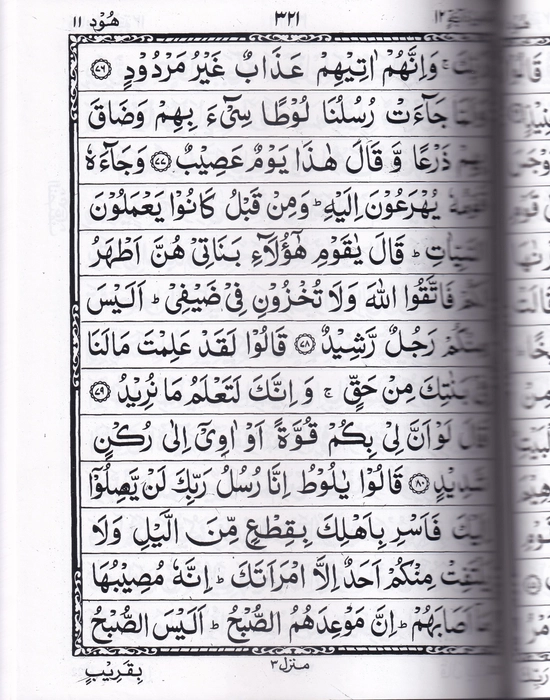 هُوْد ١١ ٣٢١ ١٢
رَبِّكَ ۚ وَاِنَّهُمْ اٰتِيْهِمْ عَذَابٌ غَيْرُ مَرْدُوْدٍ ﴿٧٦﴾
وَلَمَّا جَآءَتْ رُسُلُنَا لُوْطًا سِیْٓءَ بِهِمْ وَضَاقَ
بِهِمْ ذَرْعًا وَّ قَالَ هٰذَا يَوْمٌ عَصِيْبٌ ﴿٧٧﴾ وَجَآءَهٗ
قَوْمُهٗ يُهْرَعُوْنَ اِلَيْهِ ؕ وَمِنْ قَبْلُ كَانُوْا يَعْمَلُوْنَ
السَّيِّاٰتِ ؕ قَالَ يٰقَوْمِ هٰٓؤُلَآءِ بَنَاتِیْ هُنَّ اَطْهَرُ
لَكُمْ فَاتَّقُوا اللّٰهَ وَلَا تُخْزُوْنِ فِیْ ضَيْفِیْ ؕ اَلَيْسَ
مِنْكُمْ رَجُلٌ رَّشِيْدٌ ﴿٧٨﴾ قَالُوْا لَقَدْ عَلِمْتَ مَا لَنَا
فِیْ بَنٰتِكَ مِنْ حَقٍّ ۚ وَاِنَّكَ لَتَعْلَمُ مَا نُرِيْدُ ﴿٧٩﴾
قَالَ لَوْ اَنَّ لِیْ بِكُمْ قُوَّةً اَوْ اٰوِیْۤ اِلٰی رُكْنٍ
شَدِيْدٍ ﴿٨٠﴾ قَالُوْا يٰلُوْطُ اِنَّا رُسُلُ رَبِّكَ لَنْ يَّصِلُوْۤا
اِلَيْكَ فَاَسْرِ بِاَهْلِكَ بِقِطْعٍ مِّنَ الَّيْلِ وَلَا
يَلْتَفِتْ مِنْكُمْ اَحَدٌ اِلَّا امْرَاَتَكَ ؕ اِنَّهٗ مُصِيْبُهَا
مَاۤ اَصَابَهُمْ ؕ اِنَّ مَوْعِدَهُمُ الصُّبْحُ ؕ اَلَيْسَ الصُّبْحُ
منزل ٣
بِقَرِيْبٍ